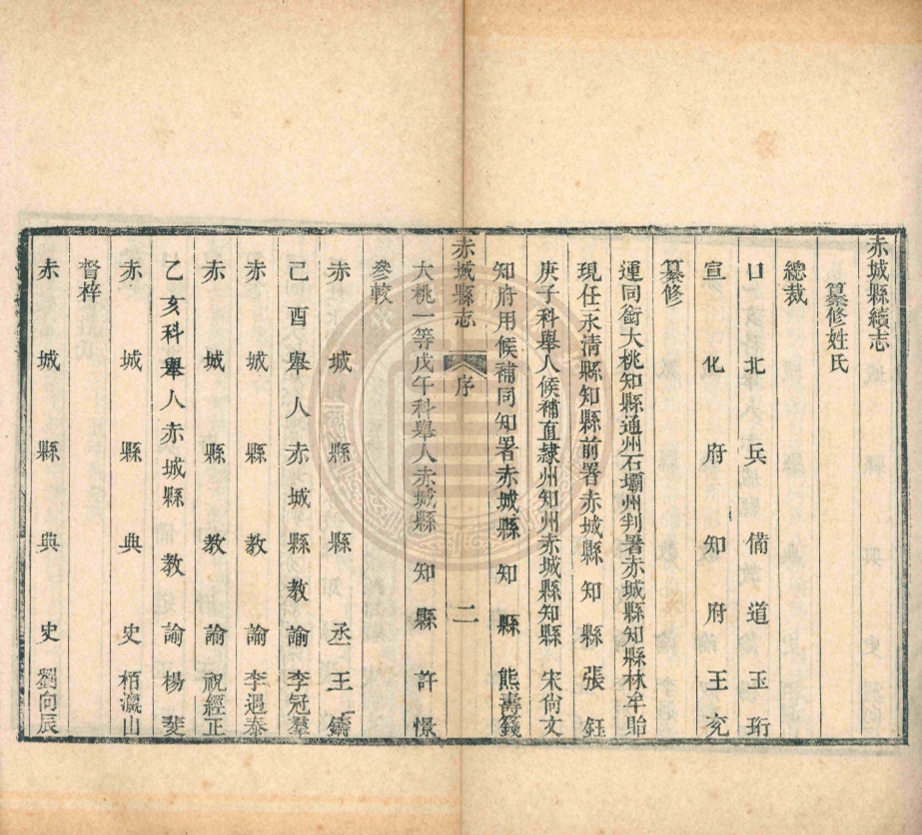 赤城縣續志
纂修姓氏
總裁
口北兵備道玉珩
宣化府知府王兗
纂修
運同銜大桃知縣通州石壩州判署赤城縣知縣林牟貽
現任永清縣知縣前署赤城縣知縣張鈺
庚子科舉人候補直隷州知州赤城縣知縣宋尙文
知府用候補同知署赤城縣知縣熊壽籛
赤城縣志
序
二
大桃一等戊午科舉人赤城縣知縣許憬
參較
赤城縣縣丞王鑄
己酉舉人赤城縣教諭李冠羣
赤城縣教諭李遇泰
赤城縣教諭祝經正
乙亥科舉人赤城縣教諭楊斐
赤城縣典史栢瀛山
督梓
赤城縣典史劉向辰